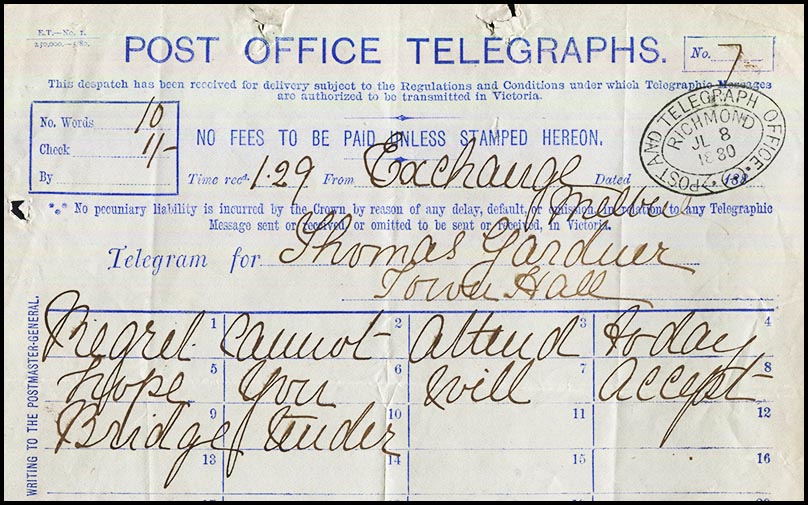 E.T.—No. 1.
250,000.—5/80.
POST OFFICE TELEGRAPHS.
No. 7
This despatch has been received for delivery subject to the Regulations and Conditions under which Telegraphic Messages
are authorized to be transmitted in Victoria.
No. Words 10
Check 1/-
By
NO FEES TO BE PAID UNLESS STAMPED HEREON.
POST AND TELEGRAPH OFFICE
RICHMOND
JL 8
1880
Time recd. 1.29 From Exchange Dated 188
Melbne
*** No pecuniary liability is incurred by the Crown by reason of any delay, default, or omission in relation to any Telegraphic
Message sent or received, or omitted to be sent or received, in Victoria.
Telegram for Thomas Gardner
Town Hall
Regret 1 Cannot 2 Attend 3 today 4
hope 5 You 6 will 7 Accept 8
Bridge 9 tender 10 11 12
13 14 15 16
WRITING TO THE POSTMASTER-GENERAL.